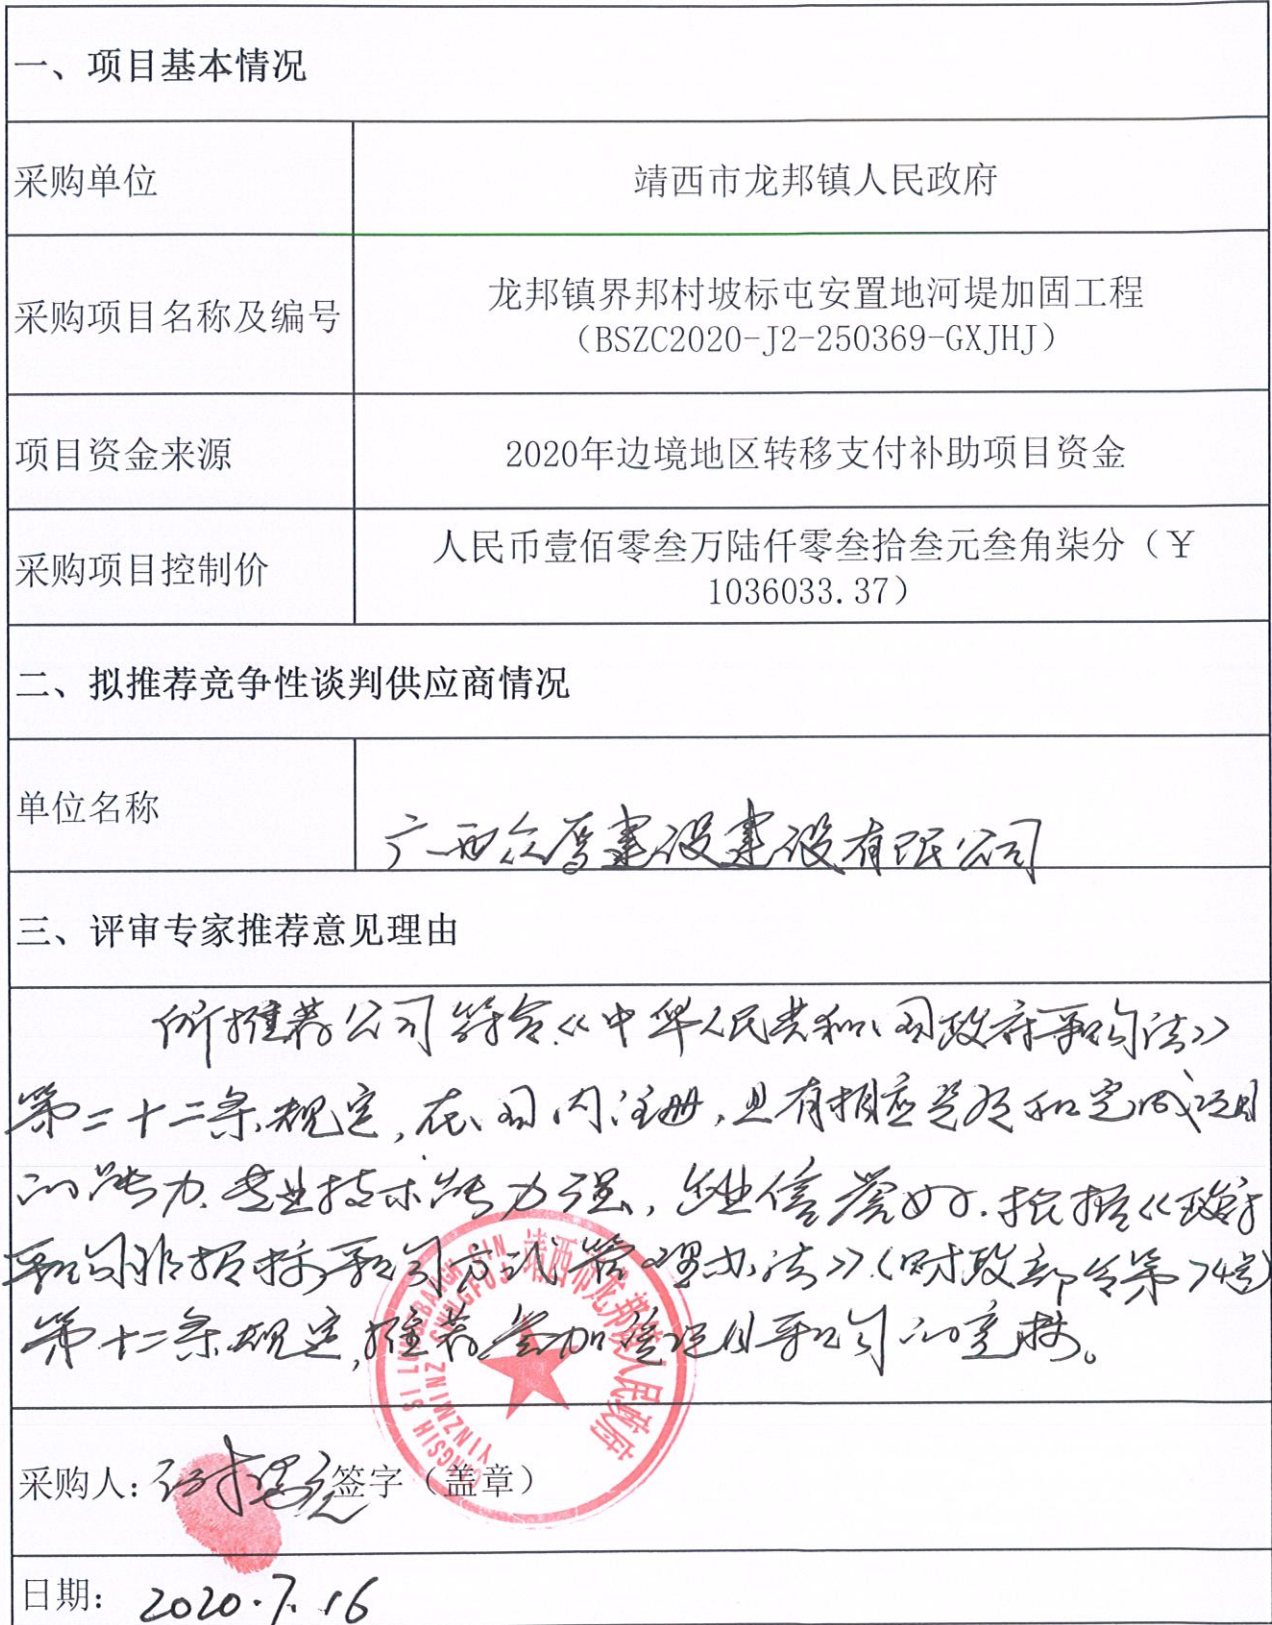 一、项目基本情况
采购单位
靖西市龙邦镇人民政府
采购项目名称及编号
龙邦镇界邦村坡标屯安置地河堤加固工程
（BSZC2020-J2-250369-GXJHJ）
项目资金来源
2020年边境地区转移支付补助项目资金
采购项目控制价
人民币壹佰零叁万陆仟零叁拾叁元叁角柒分（￥
1036033.37）
二、拟推荐竞争性谈判供应商情况
单位名称
广西众 建设建设有限公司
三、评审专家推荐意见理由
所推荐公司符合《中华人民共和国政府采购法》
第二十二条规定，在国内注册，且有相应资质和完成项目
的能力.专业技术能力强，企业信誉好.根据《政府
采购非招标采购方式管理办法》（财政部令第74号）
第十二条规定，推荐参加该项目采购的竞标。
靖西市龙邦镇人民政府
CINGSIH SI LUNGZBANGH CIN
YINZMINZ CWNGFUJ
采购人：
签字（盖章）
日期： 2020.7.16